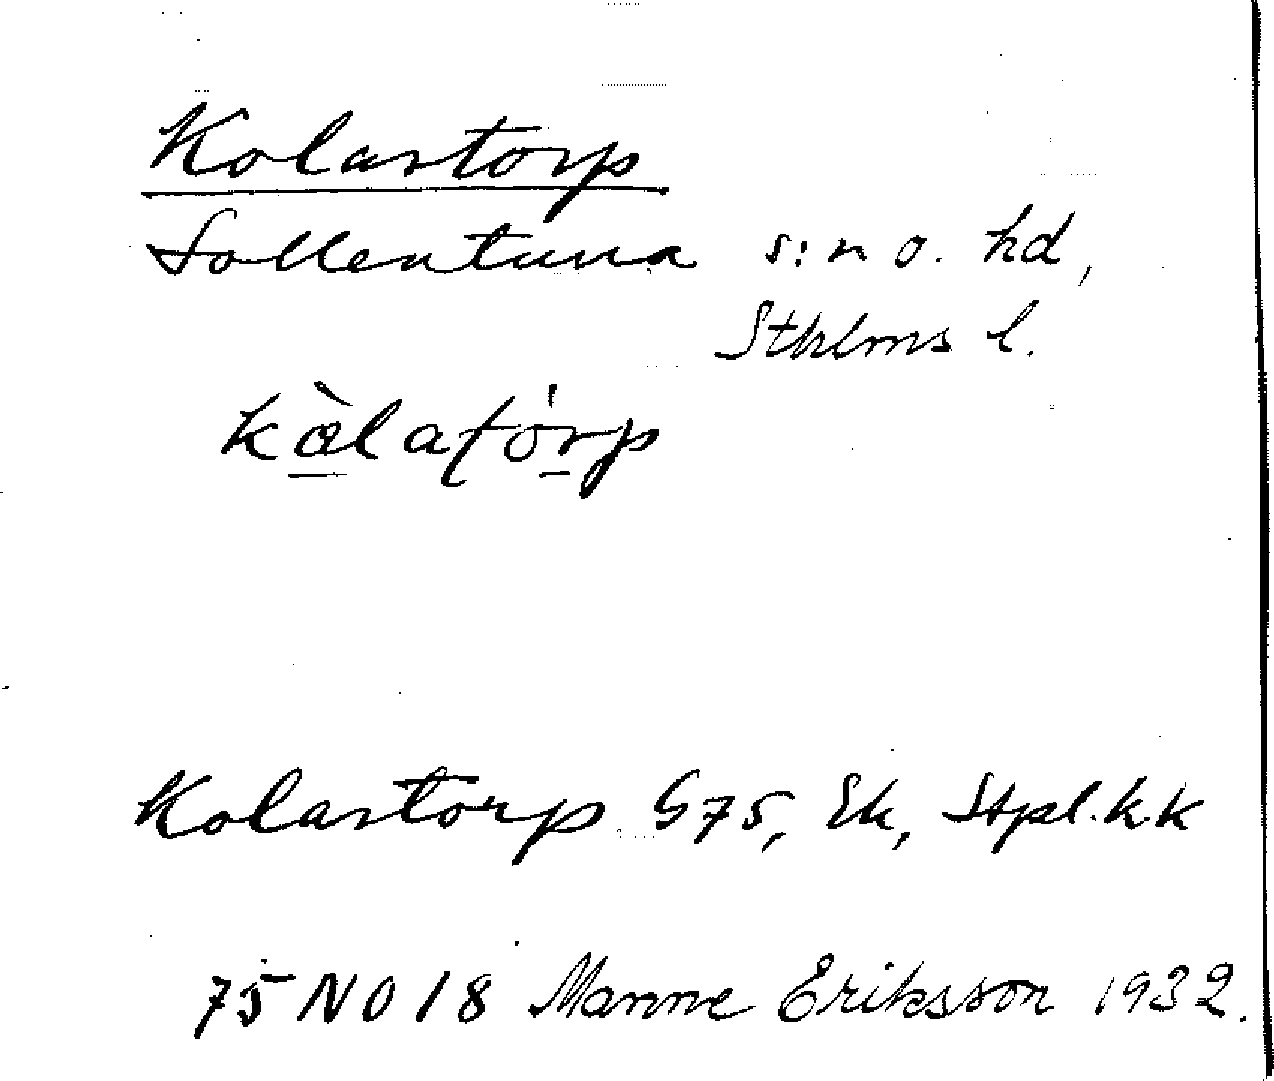 Kolartorp
Sollentuna s:n o. hd,
Sthlms l.
kòlatórp
Kolartorp G75, Ek, Stpl.k.k
75 NO 18 Manne Eriksson 1932.